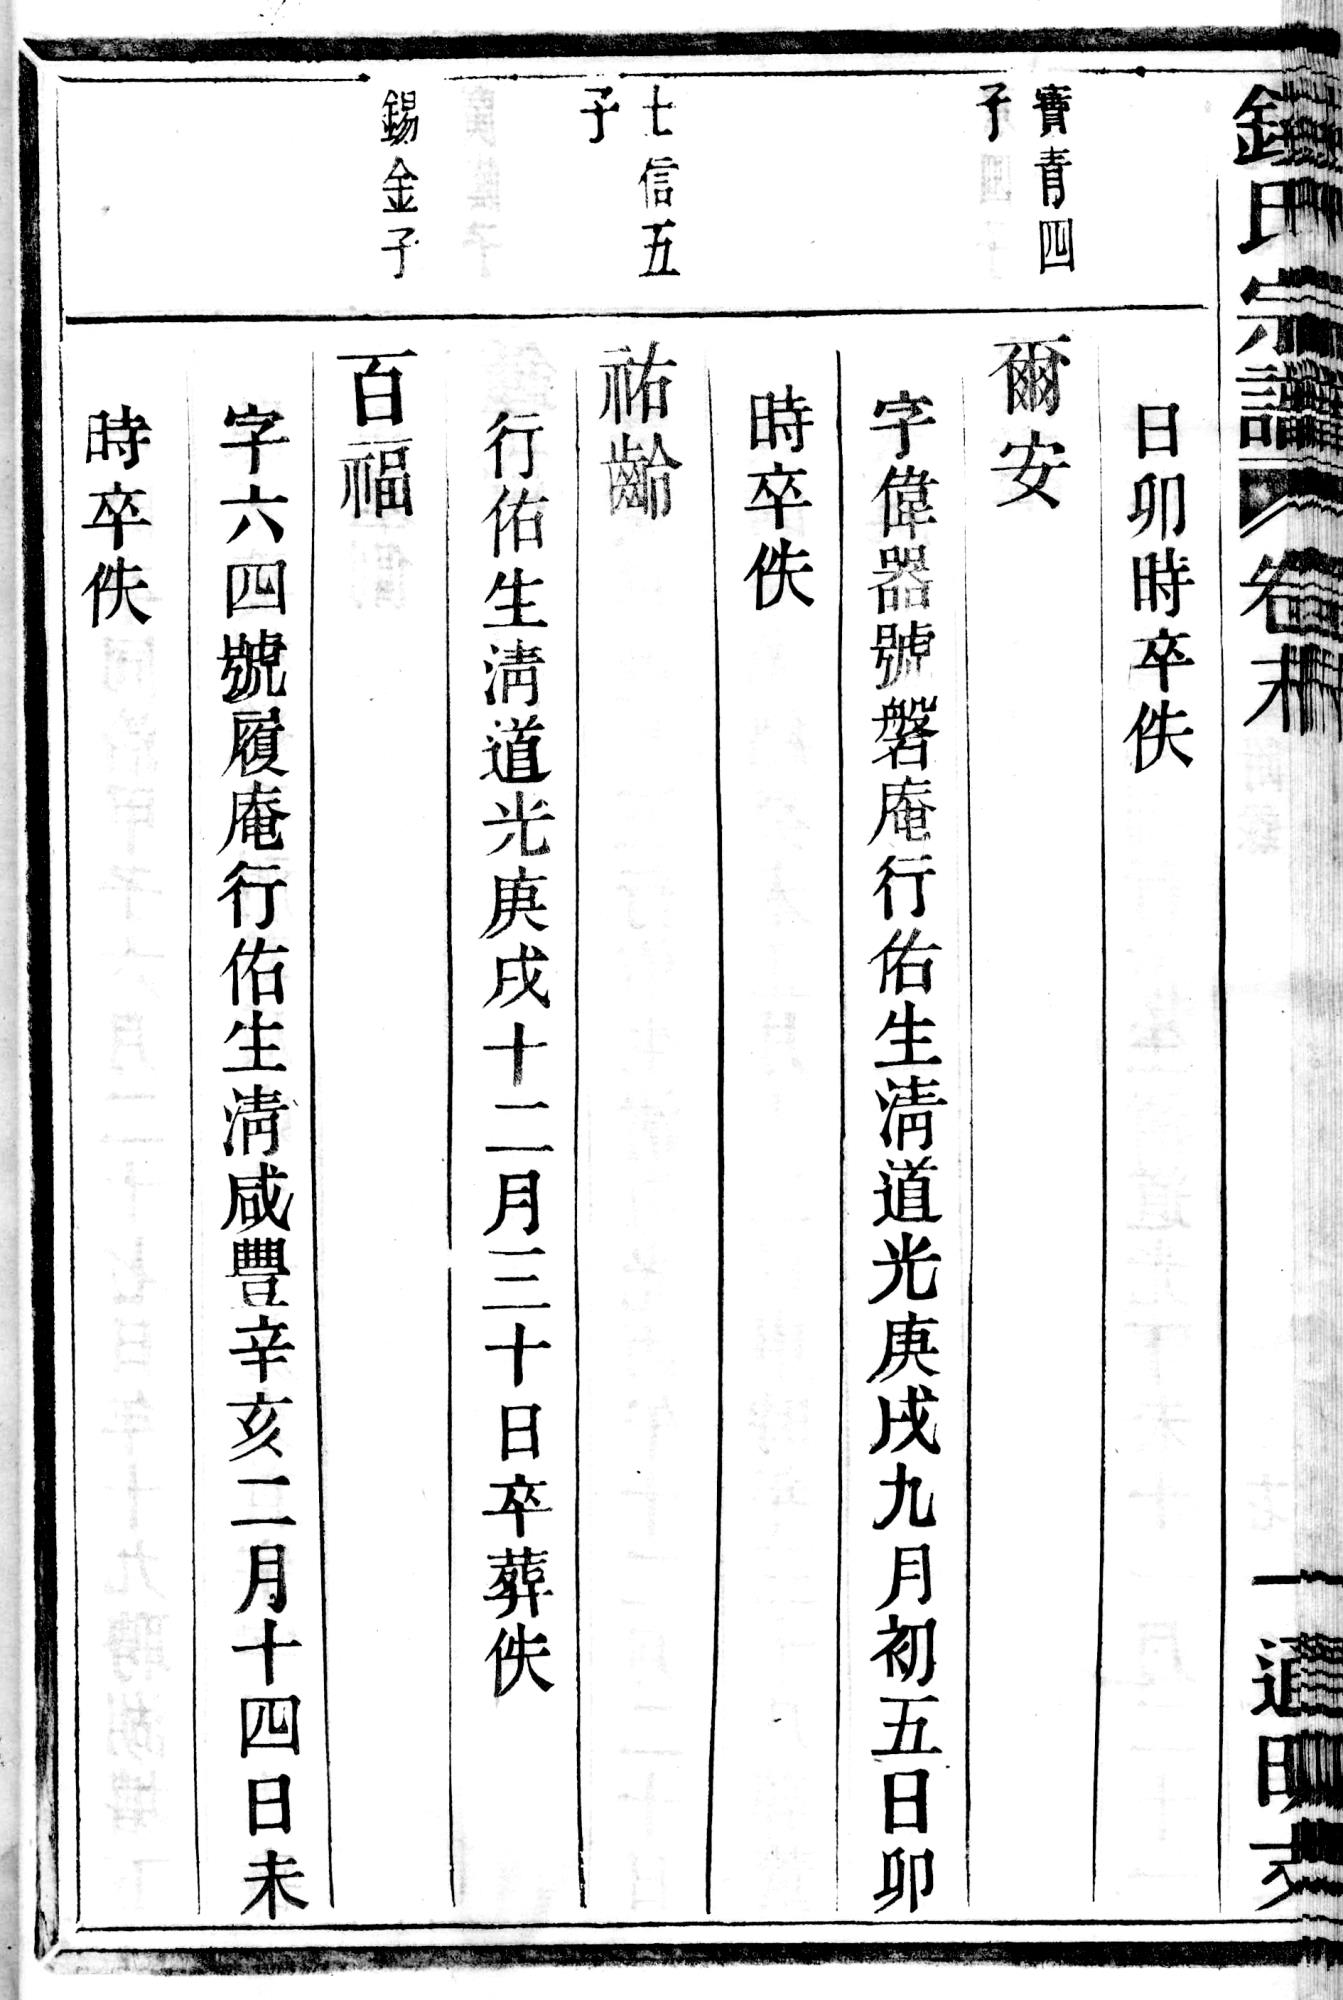 鍾氏宗譜 卷末 一 通明支
日卯時卒佚
寶青四子
爾安
字偉器號磐庵行佑生淸道光庚戌九月初五日卯
時卒佚
七信五子
祐齡
行佑生淸道光庚戌十二月三十日卒葬佚
錫金子
百福
字六四號履庵行佑生淸咸豐辛亥二月十四日未
時卒佚